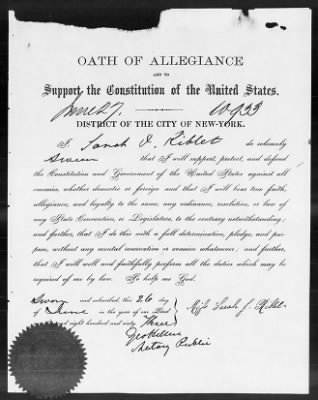 OATH OF ALLEGIANCE
AND TO
Support the Constitution of the United States.
June 27. 10933
DISTRICT OF THE CITY OF NEW-YORK.
I, Sarah J. Riblet do solemnly
Swear that I will support, protect, and defend
the Constitution and Government of the United States against all
enemies, whether domestic or foreign and that I will bear true faith,
allegiance, and loyalty to the same, any ordinance, resolution, or law of
any State Convention, or Legislature, to the contrary notwithstanding;
and further, that I do this with a full determination, pledge, and pur-
pose, without any mental reservation or evasion whatsoever; and further,
that I will well and faithfully perform all the duties which may be
required of me by law. So help me God.
Sworn and subscribed, this 26 day
of June in the year of our Lord
eight hundred and sixty Three
Sarah J. Riblet
Notary Public